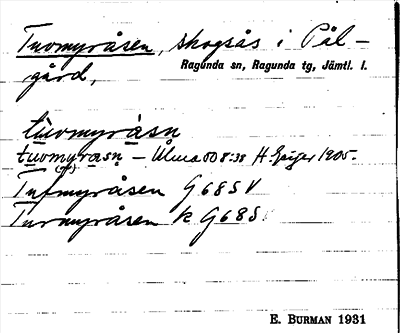 Tuvmyråsen, skogsås i Pål-
gård,
Ragunda sn, Ragunda tg, Jämtl. l.
tùvmyràsn
tuvmyrasn – Ulma 508:38 H. Geijer 1905.
Tufmyråsen G68SV
Turmyråsen k G68S.
E. BURMAN 1931